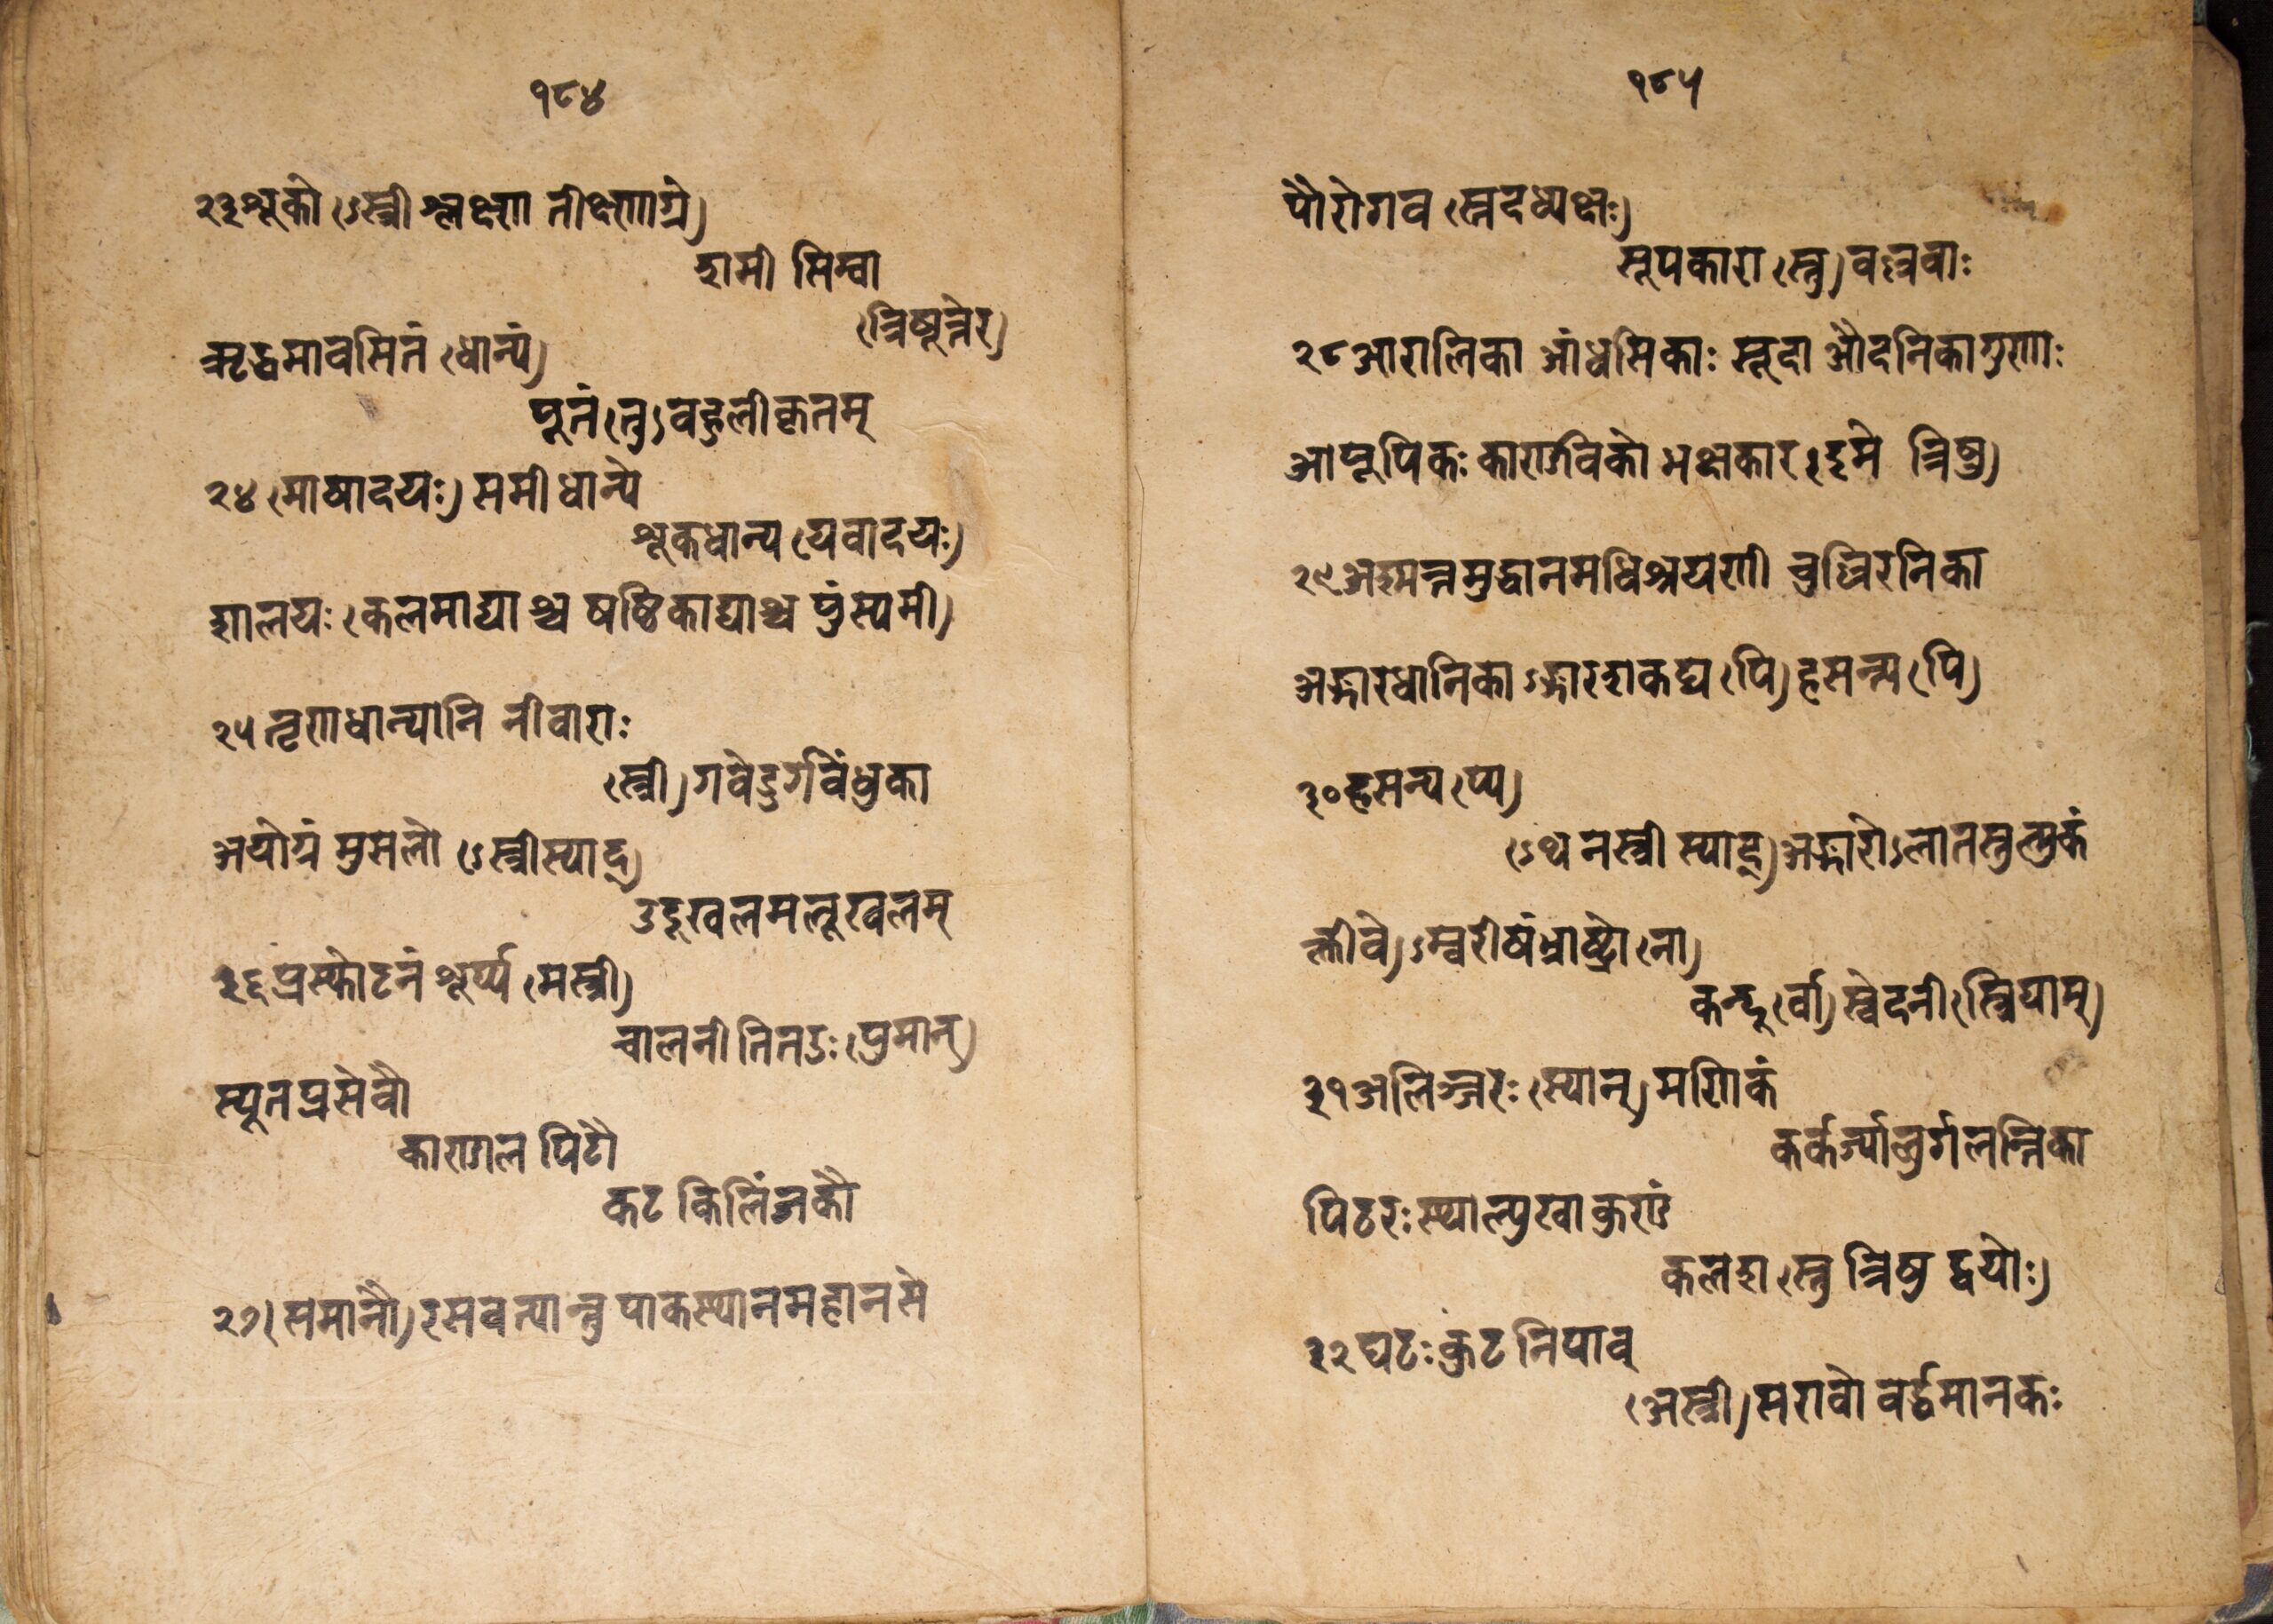 १८४
२३ शूको (ऽस्त्री श्लक्ष्ण तीक्ष्णाग्रे)
शमी सिम्बा
(त्रिषूत्तरे)
ऋद्धमावसितं (धान्यं)
पूतं (तु) बहुलीकृतम्
२४ (माषादयः) समीधान्ये
शूकधान्य (यवादयः)
शालयः (कलमाद्याश्च षष्टिकाद्याश्च पुंस्यमी)
२५ तृणधान्यानि नीवाराः
(स्त्री) गवेडुर्गवेधुका
अयोग्रं मुसलो (ऽस्त्रीस्याद्)
उदूखलमलूखलम्
२६ प्रस्फोटनं शूर्प्प (मस्त्री)
चालनी तितउः (पुमान्)
स्यूतप्रसेवौ
काण्डोल पिटौ
कट किलिंजकौ
२७ (समानौ) रसवत्यान्तु पाकस्थानमहानसे
१८५
पौरोगव (स्तदध्यक्षः)
सूपकारा (स्तु) वल्लवाः
२८ आरालिका आंधसिकाः सूदा औदनिकागुणाः
आपूपिकः कान्दविको भक्ष्यकार (इमे त्रिषु)
२९ अश्मन्तमुद्धानमधिश्रयणी चुल्लिरन्तिका
अङ्गारधानिकाऽङ्गारशकट्य (पि) हसन्त्य (पि)
३० हसन्य (प्य)
(ऽथ नस्त्री स्याद्) अङ्गारोऽलातस्तुल्मुकं
(क्लीवे)ऽम्बरीषं भ्राष्ट्रो (ना)
कन्दु (र्वा) स्वेदनी (स्त्रियाम्)
३१ अलिञ्जरः (स्यान्) मणिकं
कर्कर्य्यालुर्गलन्तिका
पिठरः स्थाल्युखा कुण्डं
कलश (स्तु त्रिषु द्वयोः)
३२ घटः कुट निपाव्
(अस्त्री) सरावो वर्द्धमानकः